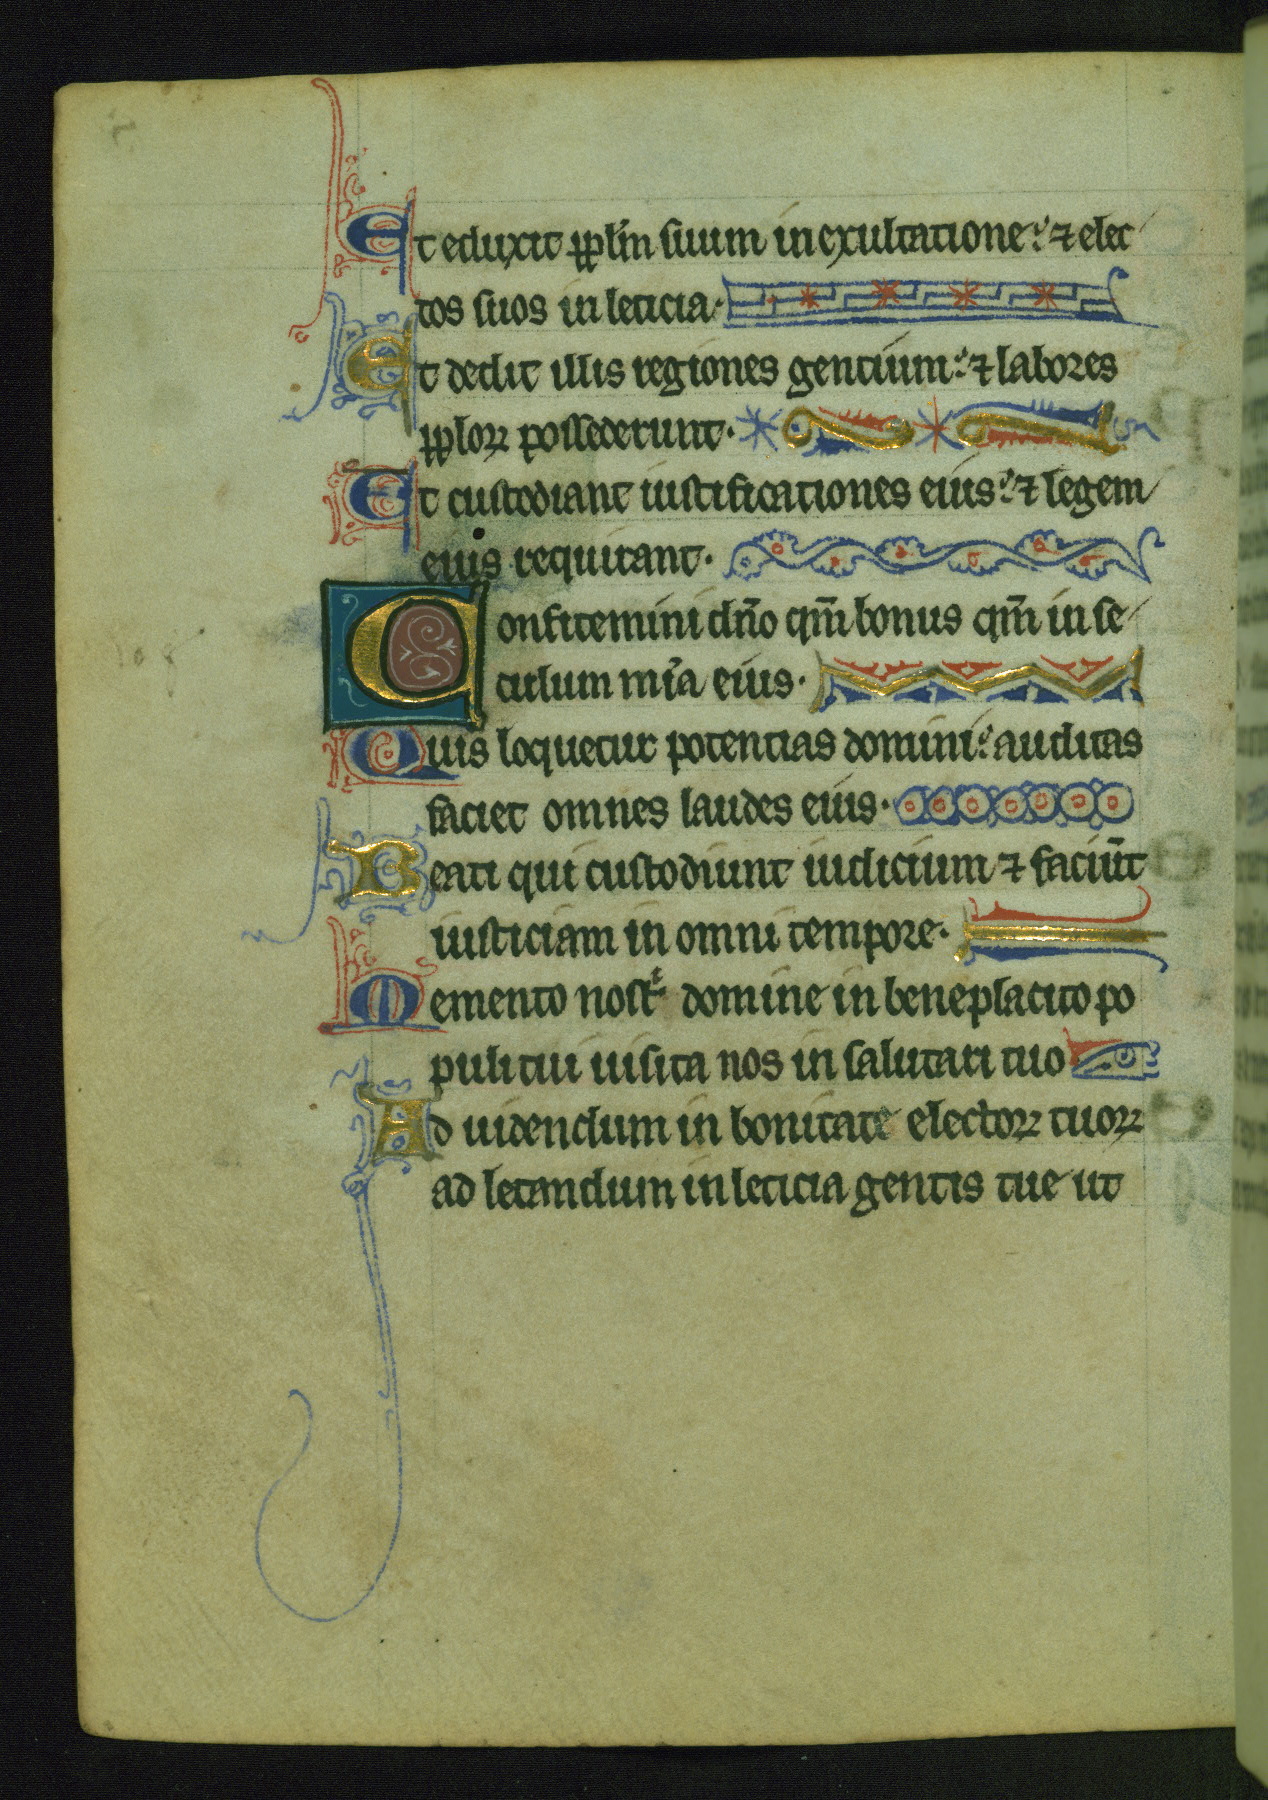 Et eduxit pplm̄ suum in exultatione: ⁊ elec
tos suos in leticia.
Et dedit illis regiones gentium: ⁊ labores
pplorꝝ possederunt.
Et custodiant iustificationes eius: ⁊ legem
eius requirant.
Confitemini dn̄o qm̄ bonus qm̄ in se
culum mīa eius.
Quis loquetur potentias domini: auditas
faciet omnes laudes eius.
Beati qui custodiunt iudicium ⁊ faciūt
iusticiam in omni tempore.
Memento nostͥ domine in beneplacito po
puli tui uisita nos in salutari tuo
Ad uidendum in bonitate electorꝝ tuorꝝ
ad letandum in leticia gentis tue ut